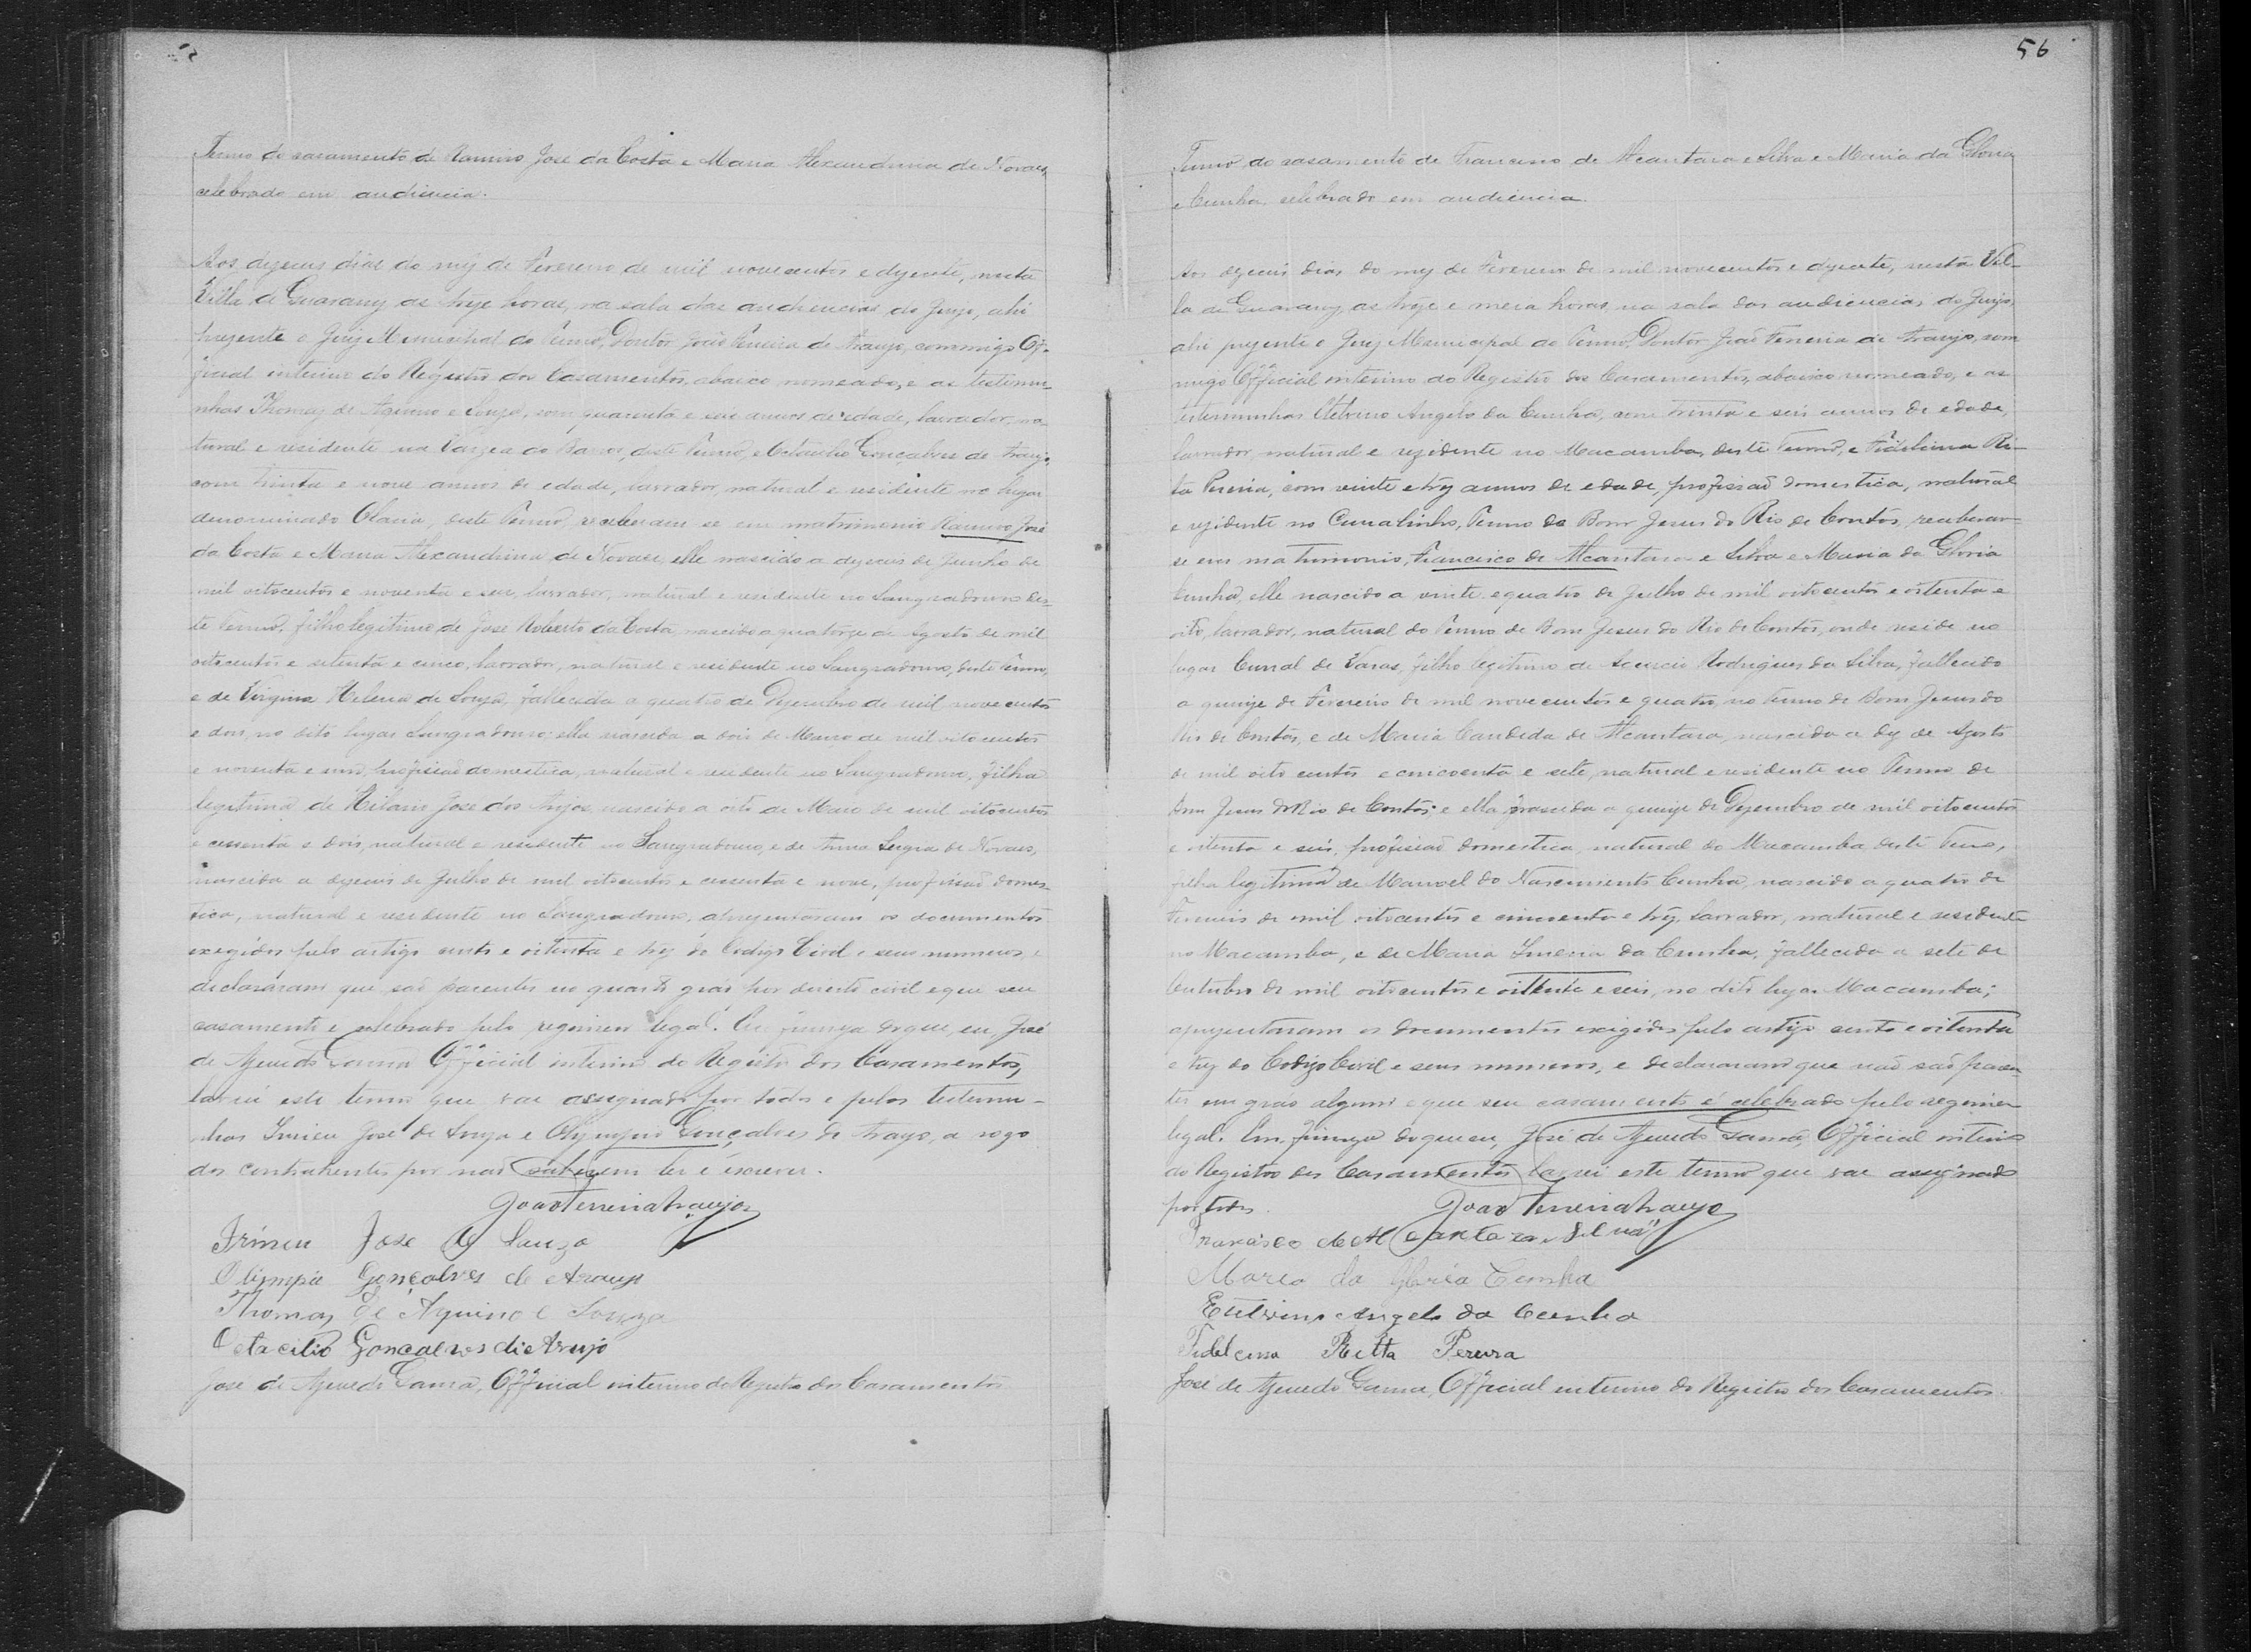 Termo do casamento de Ramiro José da Costa e Maria Alexandrina de Novaes,
celebrado em audiencia.
Aos dezeseis dias do mez de Fevereiro de mil novecentos e dezesete, nesta
Villa de Guarany, as treze horas, na sala das audiencias do Juizo, ahi
prezente o Juiz Municipal do Termo, Doutor João Ferreira de Araujo, commigo Of-
ficial interino do Registro dos Casamentos, abaixo nomeado, e as testemu-
nhas Thomaz de Aquino e Souza, com quarenta e seis annos de edade, lavrador, na-
tural e residente na Varzea do Barro, deste Termo, e Octacilio Gonçalves de Araujo,
com trinta e nove annos de edade, lavrador, natural e residente no lugar
denominado Olaria, deste Termo, receberam se em matrimonio Ramiro José
da Costa e Maria Alexandrina de Novaes, elle nascido a dezeseis de Junho de
mil oitocentos e noventa e seis, lavrador, natural e residente no Sangradouro des-
te Termo, filho legitimo de José Roberto da Costa, nascido a quatorze de Agosto de mil
oitocentos e setenta e cinco, lavrador, natural e residente no Sangradouro, deste Termo,
e de Virginia Helena de Souza, fallecida a quatro de Dezembro de mil novecentos
e dois, no dito lugar Sangradouro; ella nascida a dois de Março de mil oitocentos
e noventa e um, profissão domestica, natural e residente no Sangradouro, filha
legitima de Hilario José dos Anjos, nascido a oito de Maio de mil oitocentos
e cessenta e dois, natural e residente no Sangradouro, e de Anna Lugia de Novaes,
nascida a dezeseis de Julho de mil oitocentos e cessenta e nove, profissão domes-
tica, natural e residente no Sangradouro; aprezentaram os documentos
exegidos pelo artigo cento e oitenta e trez do Codigo Civil e seus numeros, e
declararam que são parentes no quarto gráo por direito civil e que seu
casamento é celebrado pelo regimen legal. Em firmeza do que, eu, José
de Azevedo Gama, Official interino do Registro dos Casamentos,
lavrei este termo que vae assignado por todos e pelas testemu-
nhas Irineu José de Souza e Olympio Gonçalves de Araujo, a rogo
dos contrahentes por não saberem ler e escrever.
João Ferreira Araujo
Irineu José de Souza
Olimpio Gonçalves de Araujo
Thomaz de Aquino e Souza
Octacilio Gonçalves de Araujo
José de Azevedo Gama, Official interino do Registro dos Casamentos
56
Termo do casamento de Francisco de Alcantara e Silva e Maria da Gloria
e Cunha, celebrado em audiencia.
Aos dezeseis dias do mez de Fevereiro de mil novecentos e dezesete, nesta Vil-
la de Guarany, as treze e meia horas, na sala das audiencias do Juizo,
ahi prezente o Juiz Municipal do Termo, Doutor João Ferreira de Araujo, com
migo Official interino do Registro dos Casamentos, abaixo nomeado, e as
testemunhas Etelvino Angelo da Cunha, com trinta e seis annos de edade,
lavrador, natural e rezidente no Macamba, deste Termo, e Fidelcina Ri-
ta Pereira, com vinte e trez annos de edade, profissão domestica, natural
e rezidente no Curralinho, Termo de Bom Jesus do Rio de Contas, receberam
se em matrimonio, Francisco de Alcantara e Silva e Maria da Gloria
Cunha, elle nascido a vinte e quatro de Julho de mil oitocentos e oitenta e
oito, lavrador, natural do Termo de Bom Jesus do Rio de Contas, onde reside no
lugar Curral de Varas, filho legitimo de Rodrigues da Silva, fallecido
a quinze de Fevereiro de mil novecentos e quatro, no termo de Bom Jesus do
Rio de Contas, e de Maria Candida de Alcantara, nascida a dez de Agosto
de mil oitocentos e cincoenta e sete, natural e residente no Termo de
Bom Jesus do Rio de Contas; e ella nascida a quinze de Dezembro de mil oitocentos
e oitenta e seis, profissão domestica, natural do Macamba deste Termo,
filha legitima de Manoel do Nascimento Cunha, nascido a quatro de
Fevereiro de mil oitocentos e cincoenta e trez, lavrador, natural e residente
no Macamba, e de Maria da Cunha, fallecida a sete de
Outubro de mil oitocentos e oitenta e seis, no dito lugar Macamba;
aprezentaram os documentos exigidos pelo artigo cento e oitenta
e trez do Codigo Civil e seus numeros, e declararam que não são paren-
tes em gráo algum e que seu casamento é celebrado pelo regimen
legal. Em firmeza do que eu, José de Azevedo Gama, Official interino
do Registro dos Casamentos lavrei este termo que vae assignado
por todos.
João Ferreira Araujo
Francisco de Alcantara e Silva
Maria da Gloria Cunha
Etelvino Angelo da Cunha
Fidelcina Ritta Pereira
José de Azevedo Gama, Official interino do Registro dos Casamentos.